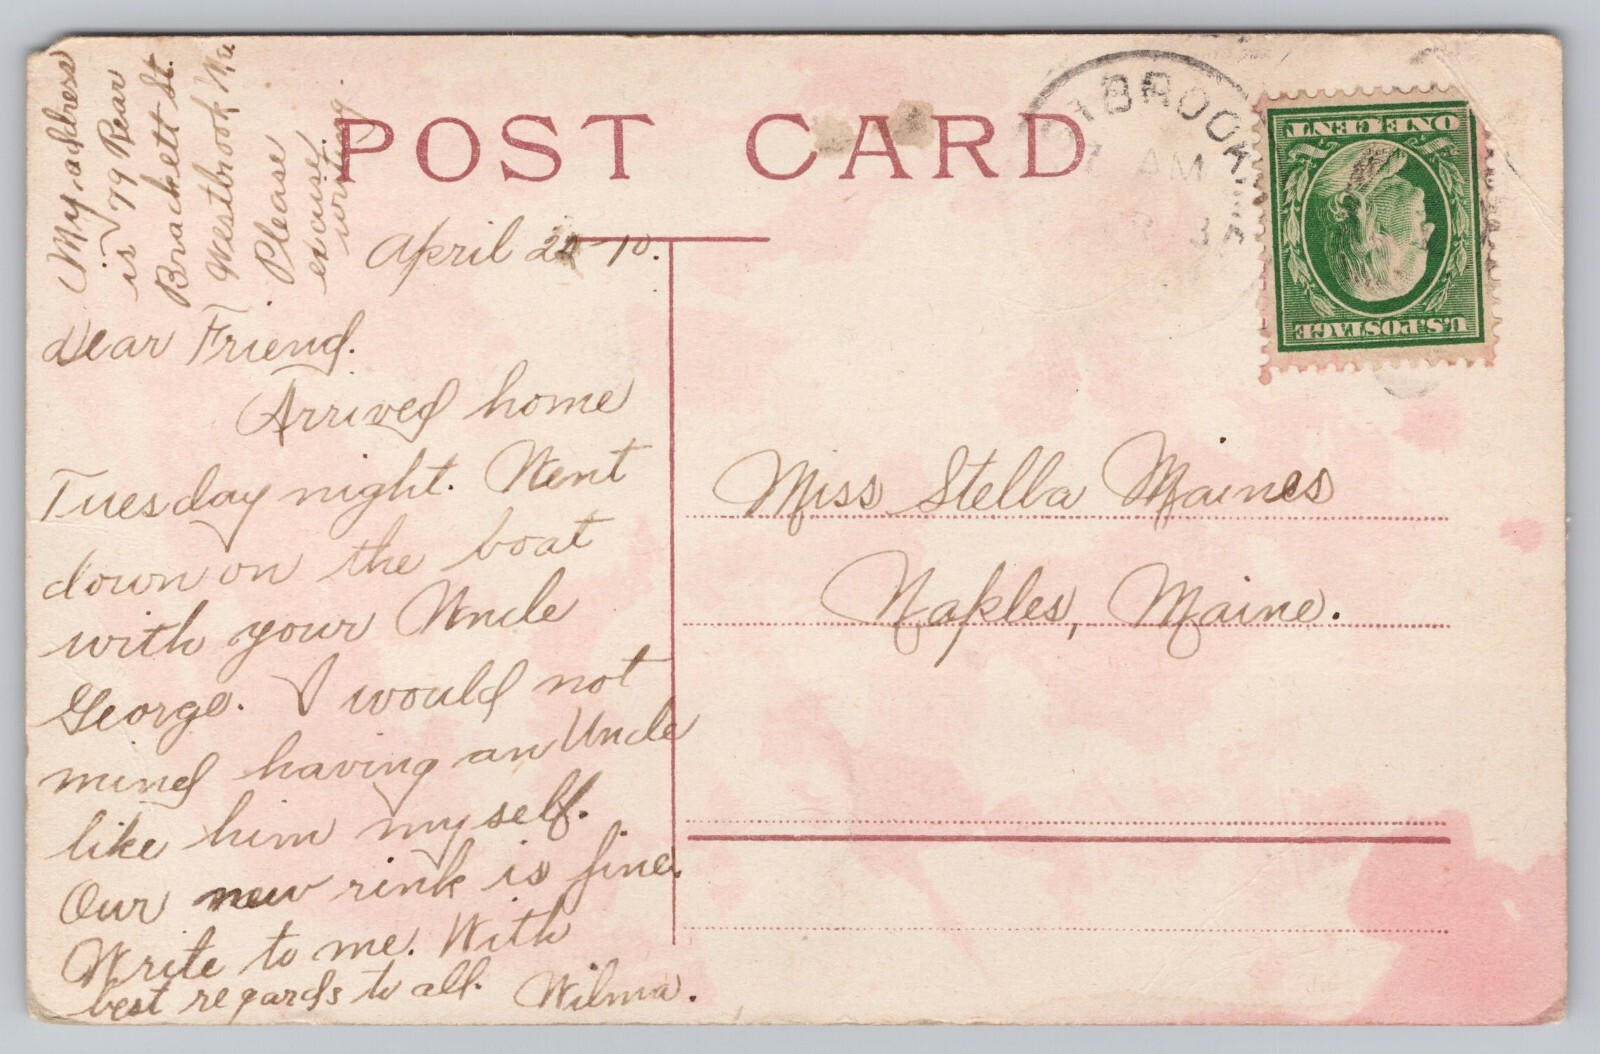 My address
is 79 Rear
Brackett St.
Westbrook Me
Please
excuse
writing.
POST CARD
BROOK
AM
ONE CENT
U.S. POSTAGE
April 22-10.
Dear Friend.
Arrived home
Tuesday night. Went
down on the boat
with your Uncle
George. I would not
mind having an Uncle
like him myself.
Our new rink is fine.
Write to me. With
best regards to all. Wilma.
Miss Stella Maines
Naples, Maine.